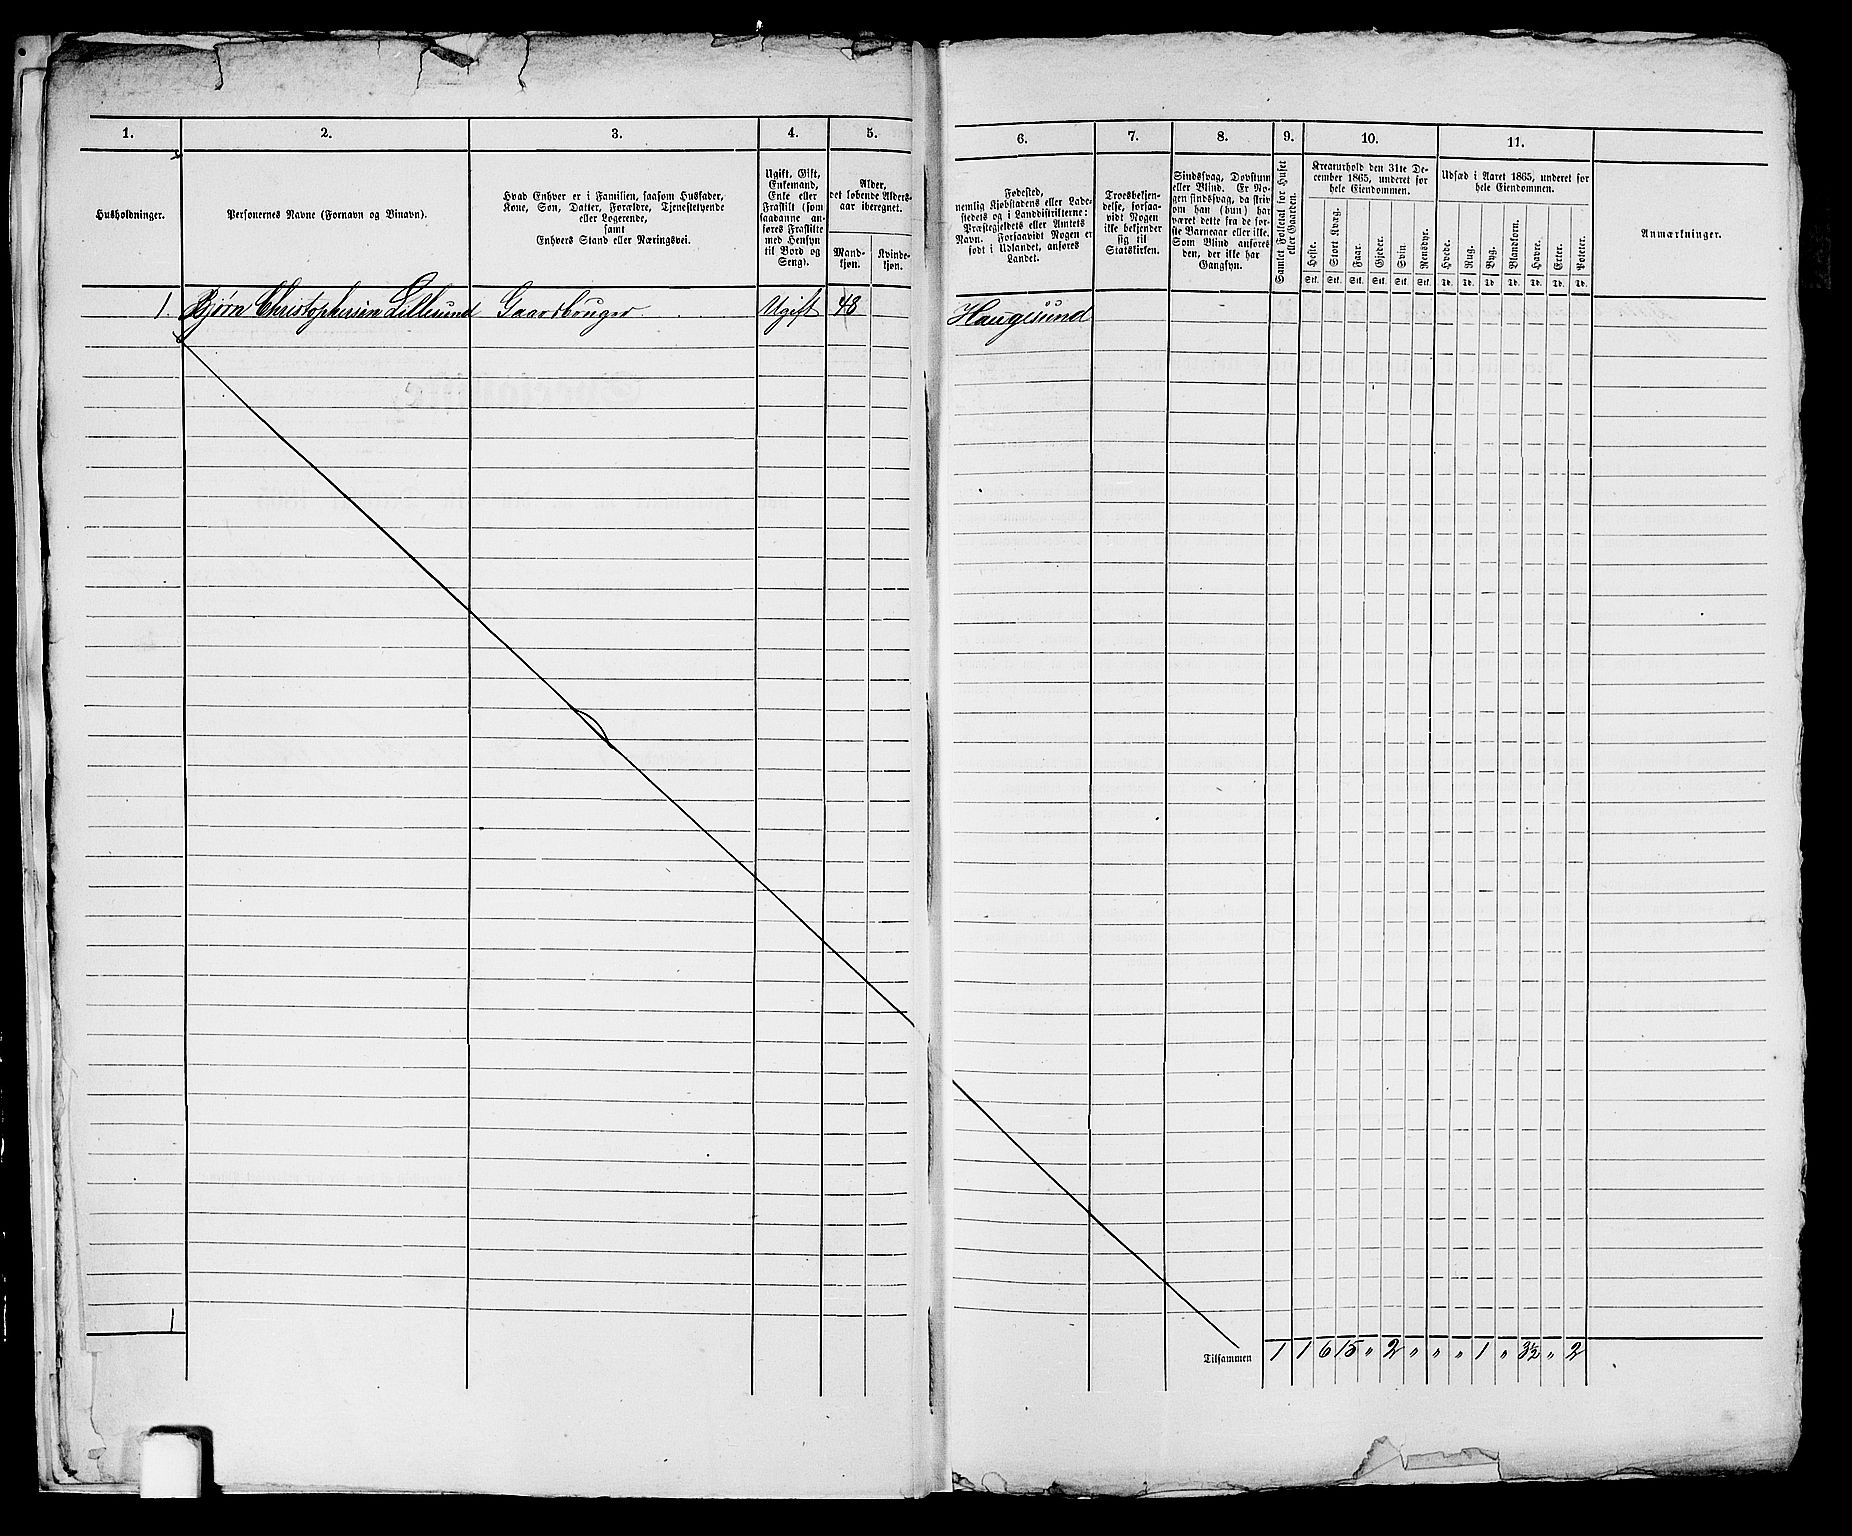 1.
2.
3.
4.
5.
Husholdninger.
Personernes Navne (Fornavn og Binavn).
Hvad Enhver er i Familien, saasom Husfader,
Kone, Søn, Datter, Forældre, Tjenestetyende
eller Logerende,
samt
Enhvers Stand eller Næringsvei.
Ugift, Gift,
Enkemand,
Enke eller
Fraskilt (som
saadanne an-
føres Fraskilte
med Hensyn
til Bord og
Seng).
Alder,
det løbende Alders-
aar iberegnet.
Mand-
kjøn.
Kvinde-
kjøn.
1. Bjørn Christophersen Lillesund Gaardbruger Ugift 48
1
6.
7.
8.
9.
10.
11.
Fødested,
nemlig Kjøbstadens eller Lade-
stedets og i Landdistrikterne:
Præstegjeldets eller Amtets
Navn. Forsaavidt Nogen er
født i Udlandet, anføres
Landet.
Troesbekjen-
delse, forsaa-
vidt Nogen
ikke bekjender
sig til
Statskirken.
Sindssvag, Døvstum
eller Blind. Er No-
gen sindssvag, da skriv
om han (hun) har
været dette fra de før-
ste Barneaar eller ikke.
Som Blind anføres
den, der ikke har
Gangsyn.
Samlet Folketal for Huset
eller Gaarden.
Kreaturhold den 31te De-
cember 1865, underet for
hele Eiendommen.
Heste. Stort Kvæg. Faar. Gjeder. Svin. Rensdyr.
Stk. Stk. Stk. Stk. Stk. Stk.
Udsæd i Aaret 1865, underet for
hele Eiendommen.
Hvede. Rug. Byg. Blandkorn. Havre. Erter. Poteter.
Td. Td. Td. Td. Td. Td. Td.
Anmærkninger.
Haugesund
Tilsammen 1 1 6 15 „ 2 „ „ „ 1 „ 3½ „ 2